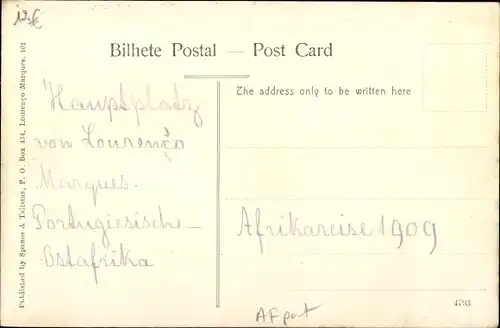 12.€
Bilhete Postal — Post Card
The address only to be written here
Hauptplatz
von Lourenço
Marques.
Portugiesische-
Ostafrika
Afrikareise 1909
AF port
4793
Published by Spanos & Tsitsias, P. O. Box 434, Lourenço Marques. 101